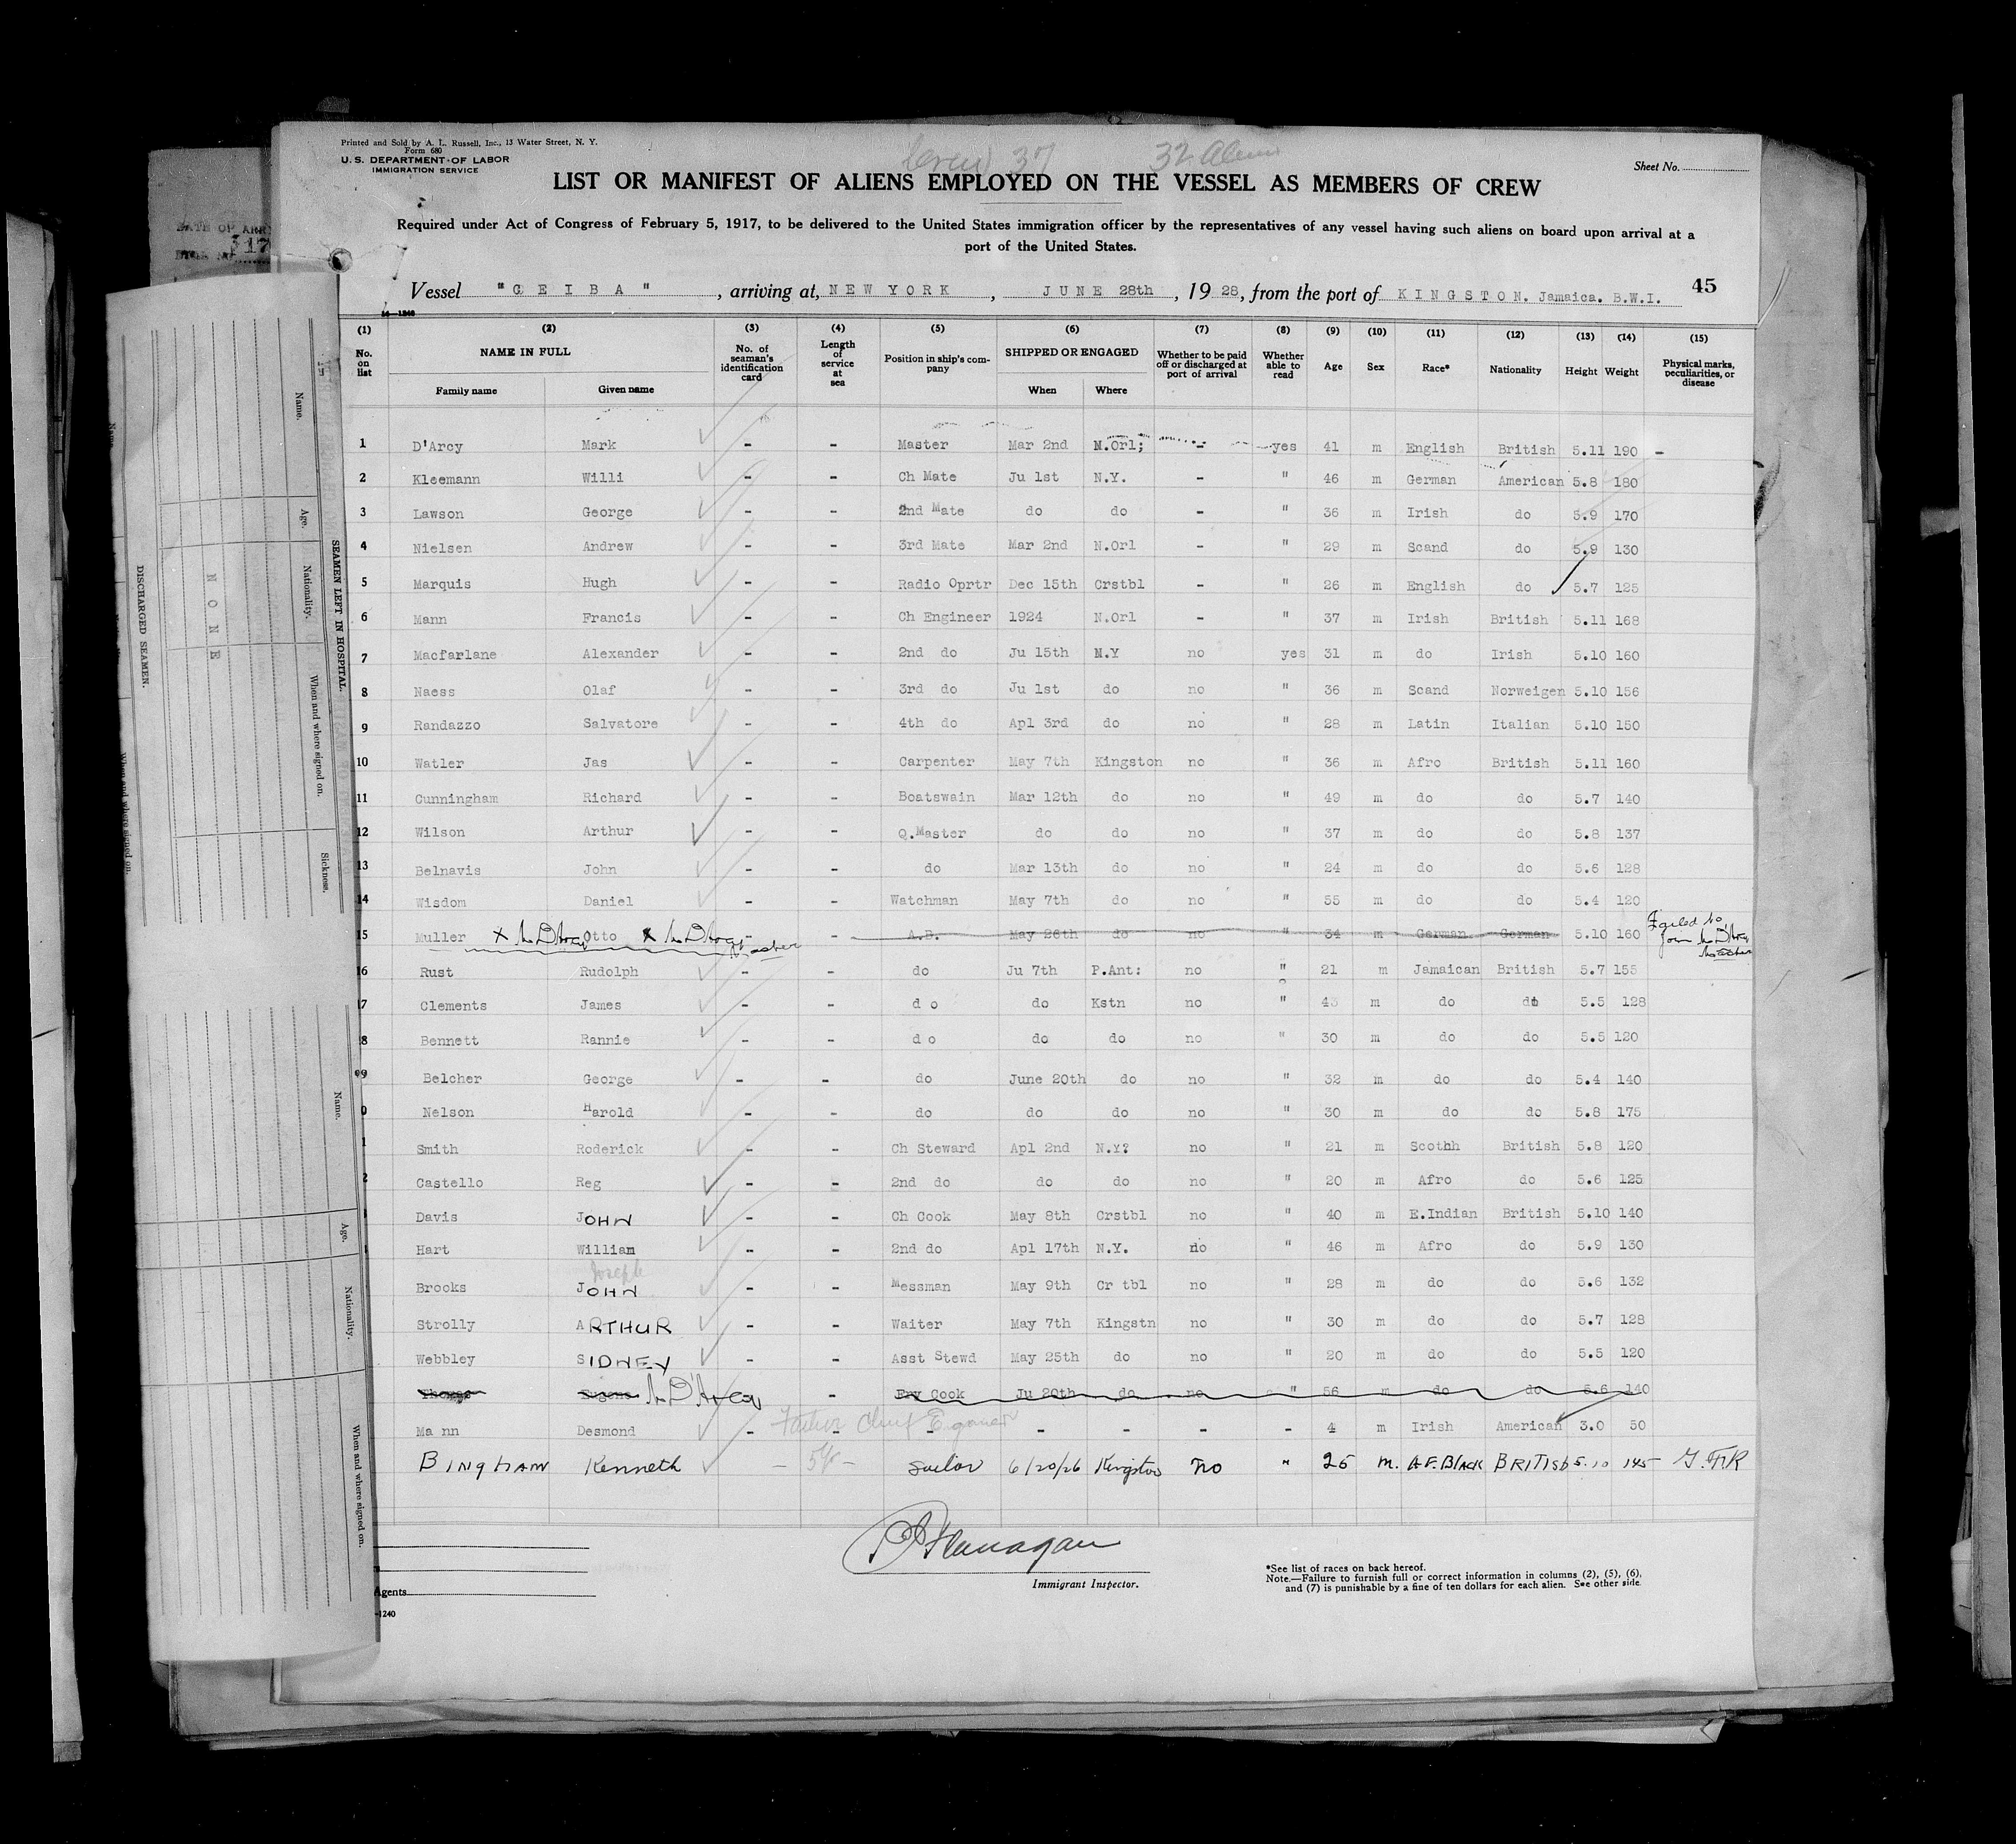 Printed and Sold by A. L. Russell, Inc., 13 Water Street, N. Y.
Form 680
U. S. DEPARTMENT OF LABOR
IMMIGRATION SERVICE
Crew 37 32 Aliens
Sheet No.
LIST OR MANIFEST OF ALIENS EMPLOYED ON THE VESSEL AS MEMBERS OF CREW
Required under Act of Congress of February 5, 1917, to be delivered to the United States immigration officer by the representatives of any vessel having such aliens on board upon arrival at a
port of the United States.
Vessel "CEIBA", arriving at, NEW YORK, JUNE 28th, 1928, from the port of KINGSTON. Jamaica. B.W.I. 45
(1) (2) (3) (4) (5) (6) (7) (8) (9) (10) (11) (12) (13) (14) (15)
No. on list NAME IN FULL Family name Given name No. of seaman's identification card Length of service at sea Position in ship's company SHIPPED OR ENGAGED When Where Whether to be paid off or discharged at port of arrival Whether able to read Age Sex Race* Nationality Height Weight Physical marks, peculiarities, or disease
1 D'Arcy Mark - - Master Mar 2nd N.Orl; - yes 41 m English British 5.11 190 -
2 Kleemann Willi - - Ch Mate Ju 1st N.Y. - " 46 m German American 5.8 180
3 Lawson George - - 2nd Mate do do - " 36 m Irish do 5.9 170
4 Nielsen Andrew - - 3rd Mate Mar 2nd N.Orl - " 29 m Scand do 5.9 130
5 Marquis Hugh - - Radio Oprtr Dec 15th Crstbl - " 26 m English do 5.7 125
6 Mann Francis - - Ch Engineer 1924 N.Orl - " 37 m Irish British 5.11 168
7 Macfarlane Alexander - - 2nd do Ju 15th N.Y no yes 31 m do Irish 5.10 160
8 Naess Olaf - - 3rd do Ju 1st do no " 36 m Scand Norweigen 5.10 156
9 Randazzo Salvatore - - 4th do Apl 3rd do no " 28 m Latin Italian 5.10 150
10 Watler Jas - - Carpenter May 7th Kingston no " 36 m Afro British 5.11 160
11 Cunningham Richard - - Boatswain Mar 12th do no " 49 m do do 5.7 140
12 Wilson Arthur - - Q.Master do do no " 37 m do do 5.8 137
13 Belnavis John - - do Mar 13th do no " 24 m do do 5.6 128
14 Wisdom Daniel - - Watchman May 7th do no " 55 m do do 5.4 120
15 Muller X M D'Arcy Otto X M D'Arcy Master - - A.B. May 26th do no " 34 m German German 5.10 160 Failed to join M D'Arcy Master
16 Rust Rudolph - - do Ju 7th P.Ant: no " 21 m Jamaican British 5.7 155
17 Clements James - - d o do Kstn no " 43 m do do 5.5 128
8 Bennett Rannie - - d o do do no " 30 m do do 5.5 120
9 Belcher George - - do June 20th do no " 32 m do do 5.4 140
0 Nelson Harold - - do do do no " 30 m do do 5.8 175
1 Smith Roderick - - Ch Steward Apl 2nd N.Y? no " 21 m Scothh British 5.8 120
2 Castello Reg - - 2nd do do do no " 20 m Afro do 5.6 125
Davis JOHN - - Ch Cook May 8th Crstbl no " 40 m E.Indian British 5.10 140
Hart William - - 2nd do Apl 17th N.Y. no " 46 m Afro do 5.9 130
Joseph
Brooks JOHN - - Messman May 9th Cr tbl no " 28 m do do 5.6 132
Strolly ARTHUR - - Waiter May 7th Kingstn no " 30 m do do 5.7 128
Webbley SIDNEY - - Asst Stewd May 25th do no " 20 m do do 5.5 120
Thomas Eugene M D'Arcy - - Fry Cook Ju 20th do no " 56 m do do 5.6 140
Ma nn Desmond - Father Chief Engineer - - - - - 4 m Irish American 3.0 50
BINGHAM Kenneth - 5yr - Sailor 6/20/26 Kingston no " 25 m. AF. BLACK BRITISH 5.10 145 G.F.R
Flanagan
Immigrant Inspector.
*See list of races on back hereof.
Note.—Failure to furnish full or correct information in columns (2), (5), (6),
and (7) is punishable by a fine of ten dollars for each alien. See other side.
Agents
-1240
DATE OF ARR
317
SEAMEN LEFT IN HOSPITAL.
Name. Age. Nationality. When and where signed on. Sickness.
NONE
DISCHARGED SEAMEN.
When and where signed on.
Name. Age. Nationality. When and where signed on.